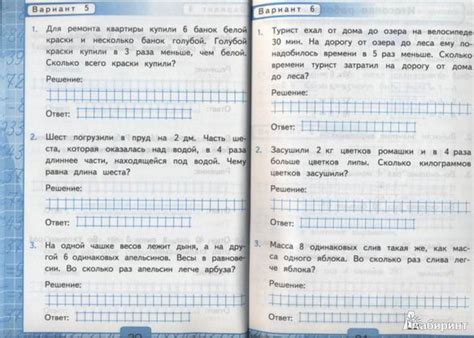 Вариант 5
1. Для ремонта квартиры купили 6 банок белой
краски и несколько банок голубой. Голубой
краски купили в 3 раза меньше, чем белой.
Сколько всего краски купили?
Решение:
Ответ:
2. Шест погрузили в пруд на 2 дм. Часть ше-
ста, которая оказалась над водой, в 4 раза
длиннее части, находящейся под водой. Чему
равна длина шеста?
Решение:
Ответ:
3. На одной чашке весов лежит дыня, а на дру-
гой 6 одинаковых апельсинов. Весы в равнове-
сии. Во сколько раз апельсин легче арбуза?
Ответ:
20
Вариант 6
1. Турист ехал от дома до озера на велосипеде
30 мин. На дорогу от озера до леса ему по-
надобилось времени в 5 раз меньше. Сколько
времени турист затратил на дорогу от дома
до леса?
Решение:
Ответ:
2. Засушили 2 кг цветков ромашки и в 4 раза
больше цветков липы. Сколько килограммов
цветков засушили?
Решение:
Ответ:
3. Масса 8 одинаковых слив такая же, как мас-
са одного яблока. Во сколько раз слива лег-
че яблока?
Решение:
Ответ:
21
Лабиринт